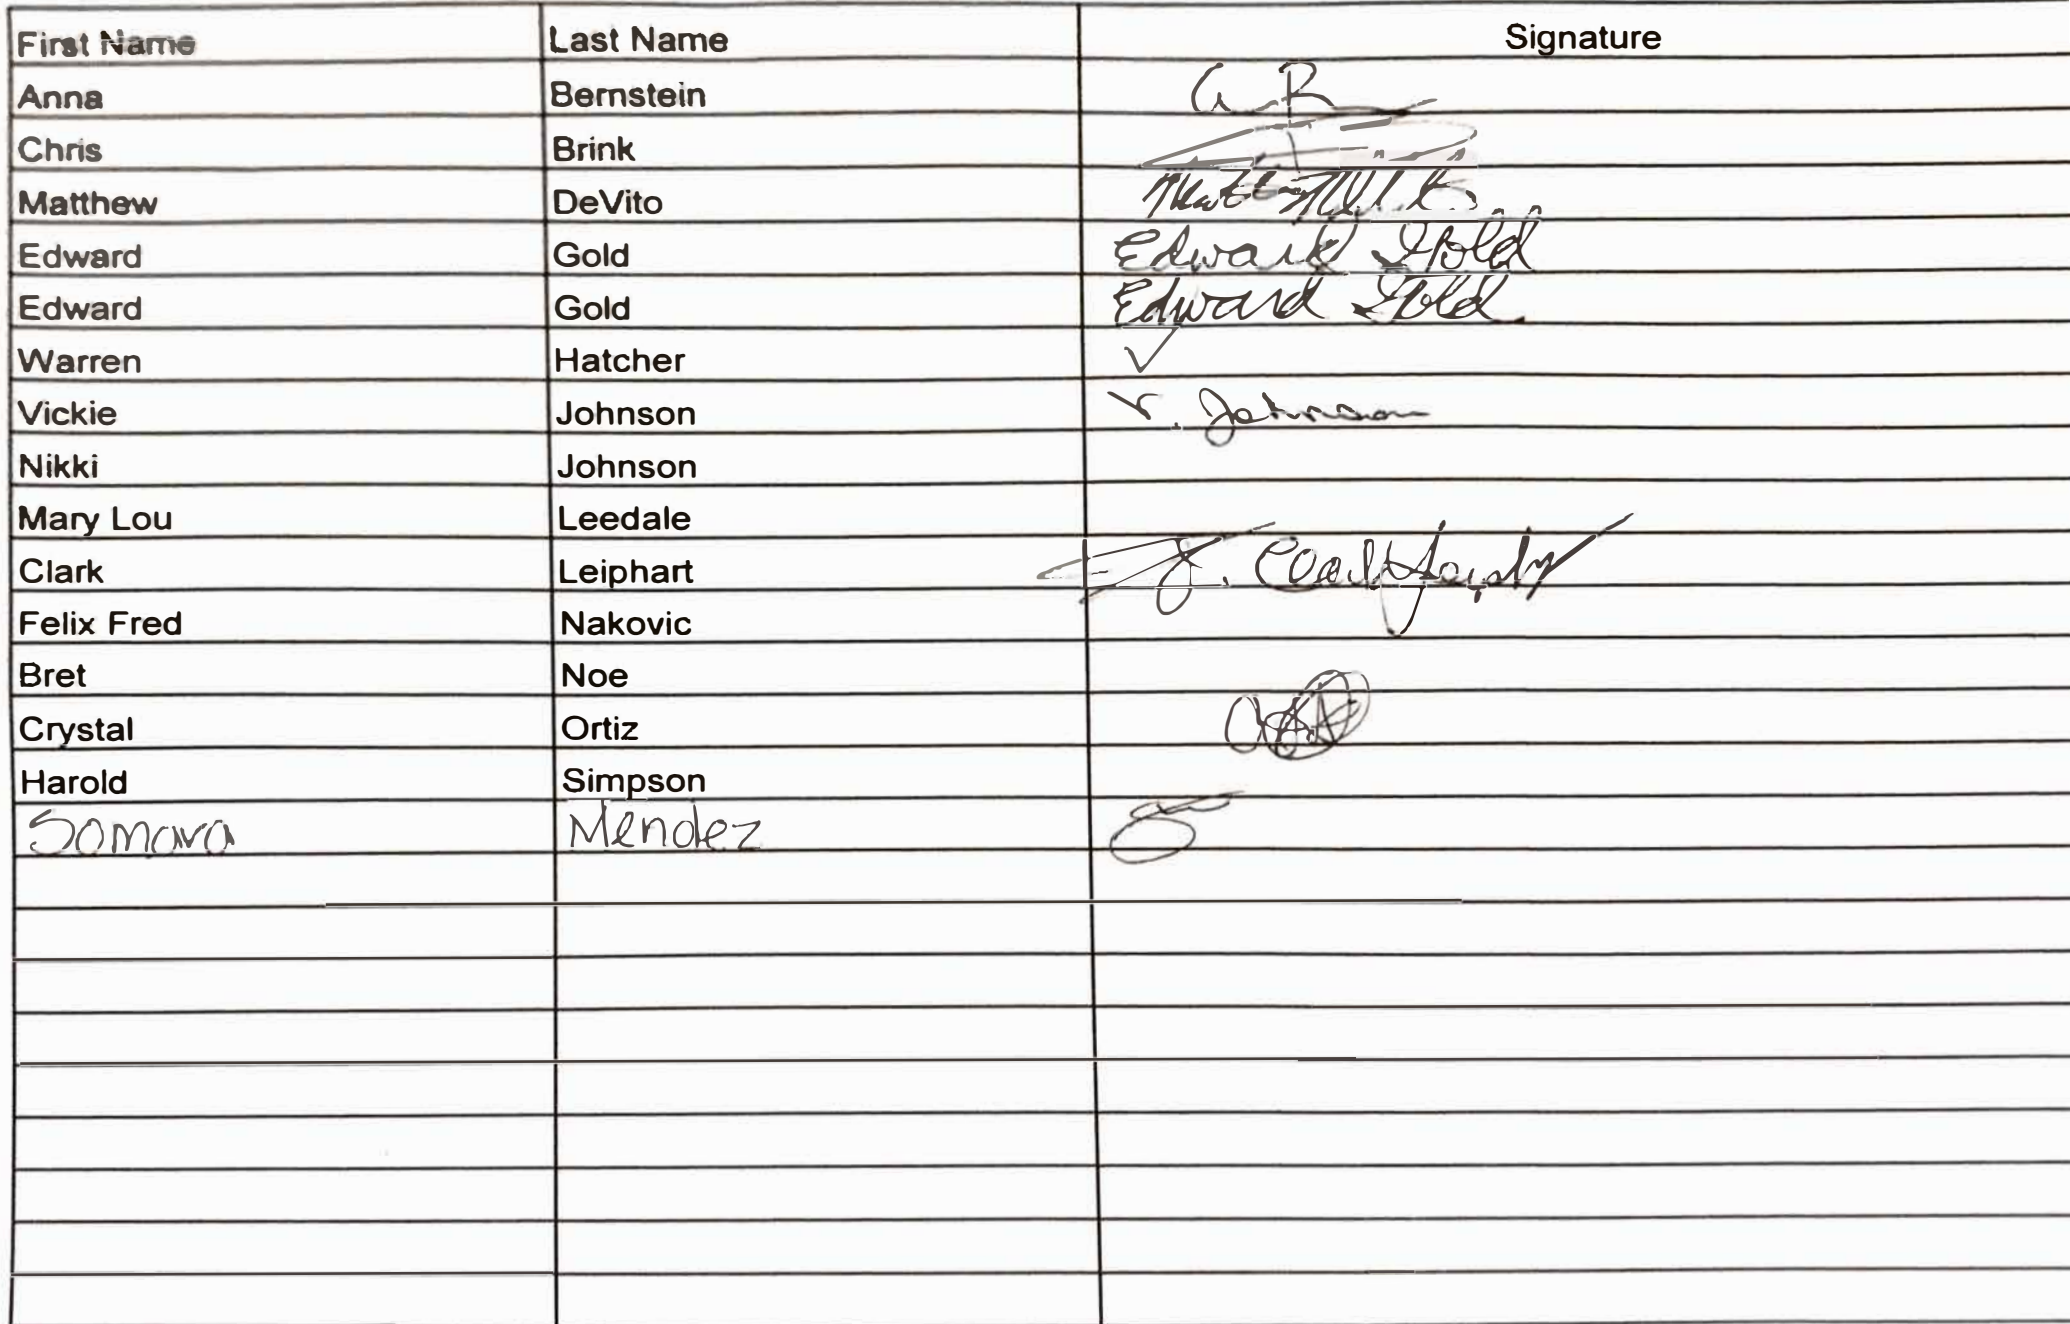 First Name Last Name Signature
Anna Bernstein
Chris Brink
Matthew DeVito
Edward Gold Edward Gold
Edward Gold Edward Gold
Warren Hatcher ✓
Vickie Johnson V. Johnson
Nikki Johnson
Mary Lou Leedale
Clark Leiphart
Felix Fred Nakovic
Bret Noe
Crystal Ortiz
Harold Simpson
Somara Mendez